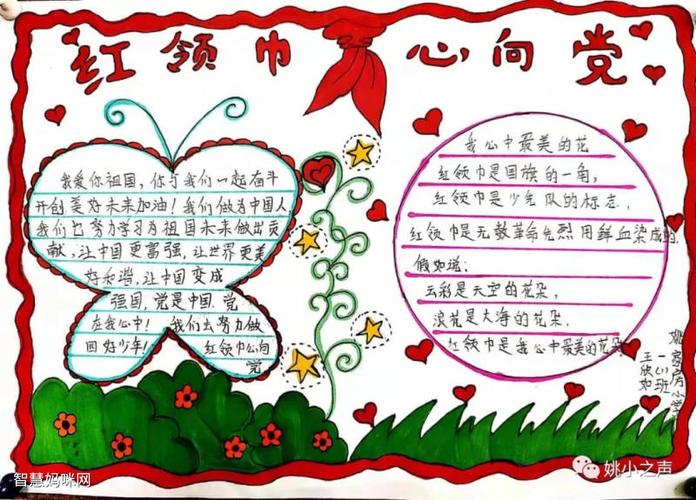 红领巾 心向党
我爱你祖国,你与我们一起奋斗
开创美好未来加油!我们做为中国人
我们也努力学习为祖国未来做出贡
献,让中国更富强,让世界更美
好和谐,让中国变成
强国,党是中国,党
在我心中!我们去努力做
四好少年! 红领巾心向
党
我心中最美的花
红领巾是国旗的一角,
红领巾是少先队的标志,
红领巾是无数革命先烈用鲜血染成的,
假如说:
云彩是天空的花朵,
浪花是大海的花朵,
红领巾是我心中最美的花朵
姚家房小学
一(1)班
王欣如
智慧妈咪网
姚小之声